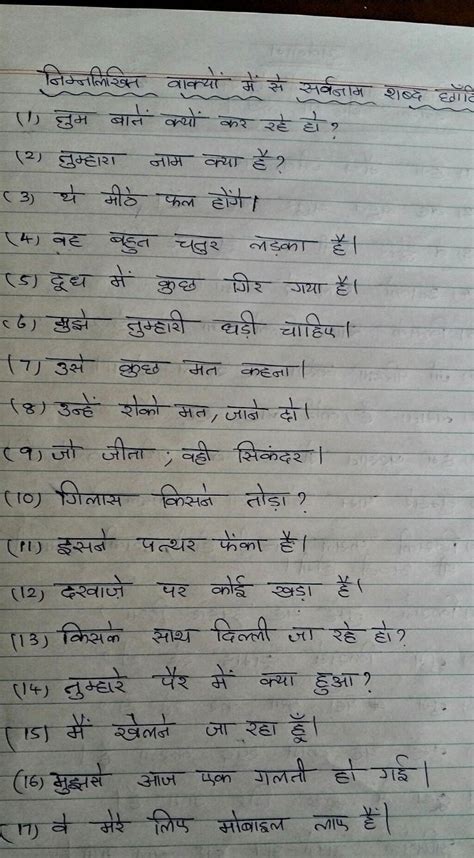 निम्नलिखित वाक्यों में से सर्वनाम शब्द छाँटि
(1) तुम बातें क्यों कर रहे हो?
(2) तुम्हारा नाम क्या है?
(3) ये मीठे फल होंगे।
(4) वह बहुत चतुर लड़का है।
(5) दूध में कुछ गिर गया है।
(6) मुझे तुम्हारी घड़ी चाहिए।
(7) उसे कुछ मत कहना।
(8) उन्हें रोको मत, जाने दो।
(9) जो जीता ; वही सिकंदर।
(10) गिलास किसने तोड़ा?
(11) इसने पत्थर फेंका है।
(12) दरवाज़े पर कोई खड़ा है।
(13) किसके साथ दिल्ली जा रहे हो?
(14) तुम्हारे पैर में क्या हुआ?
(15) मैं खेलने जा रहा हूँ।
(16) मुझसे आज एक गलती हो गई।
(17) वे मेरे लिए मोबाइल लाए हैं।